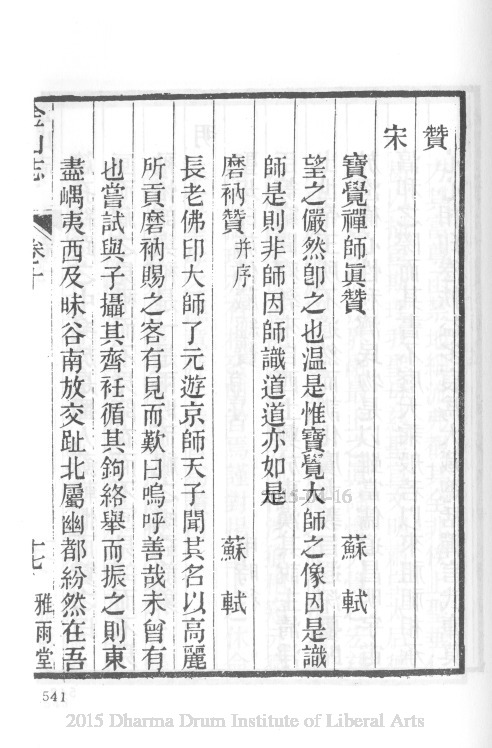 贊
宋
寶覺禪師眞贊 蘇軾
望之儼然卽之也温是惟寶覺大師之像因是識
師是則非師因師識道道亦如是
磨衲贊 并序 蘇軾
長老佛印大師了元遊京師天子聞其名以高麗
所貢磨衲賜之客有見而歎曰嗚呼善哉未曾有
也嘗試與子攝其齊衽循其鉤絡舉而振之則東
盡嵎夷西及昧谷南放交趾北屬幽都紛然在吾
金山志
卷十
十七
雅雨堂
541
2015 Dharma Drum Institute of Liberal Arts